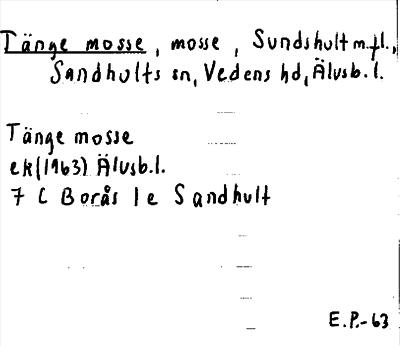 Tänge mosse, mosse, Sundshult m.fl.,
Sandhults sn, Vedens hd, Älvsb.l.
Tänge mosse
ek(1963) Älvsb.l.
7 C Borås 1 e Sandhult
E.P.-63